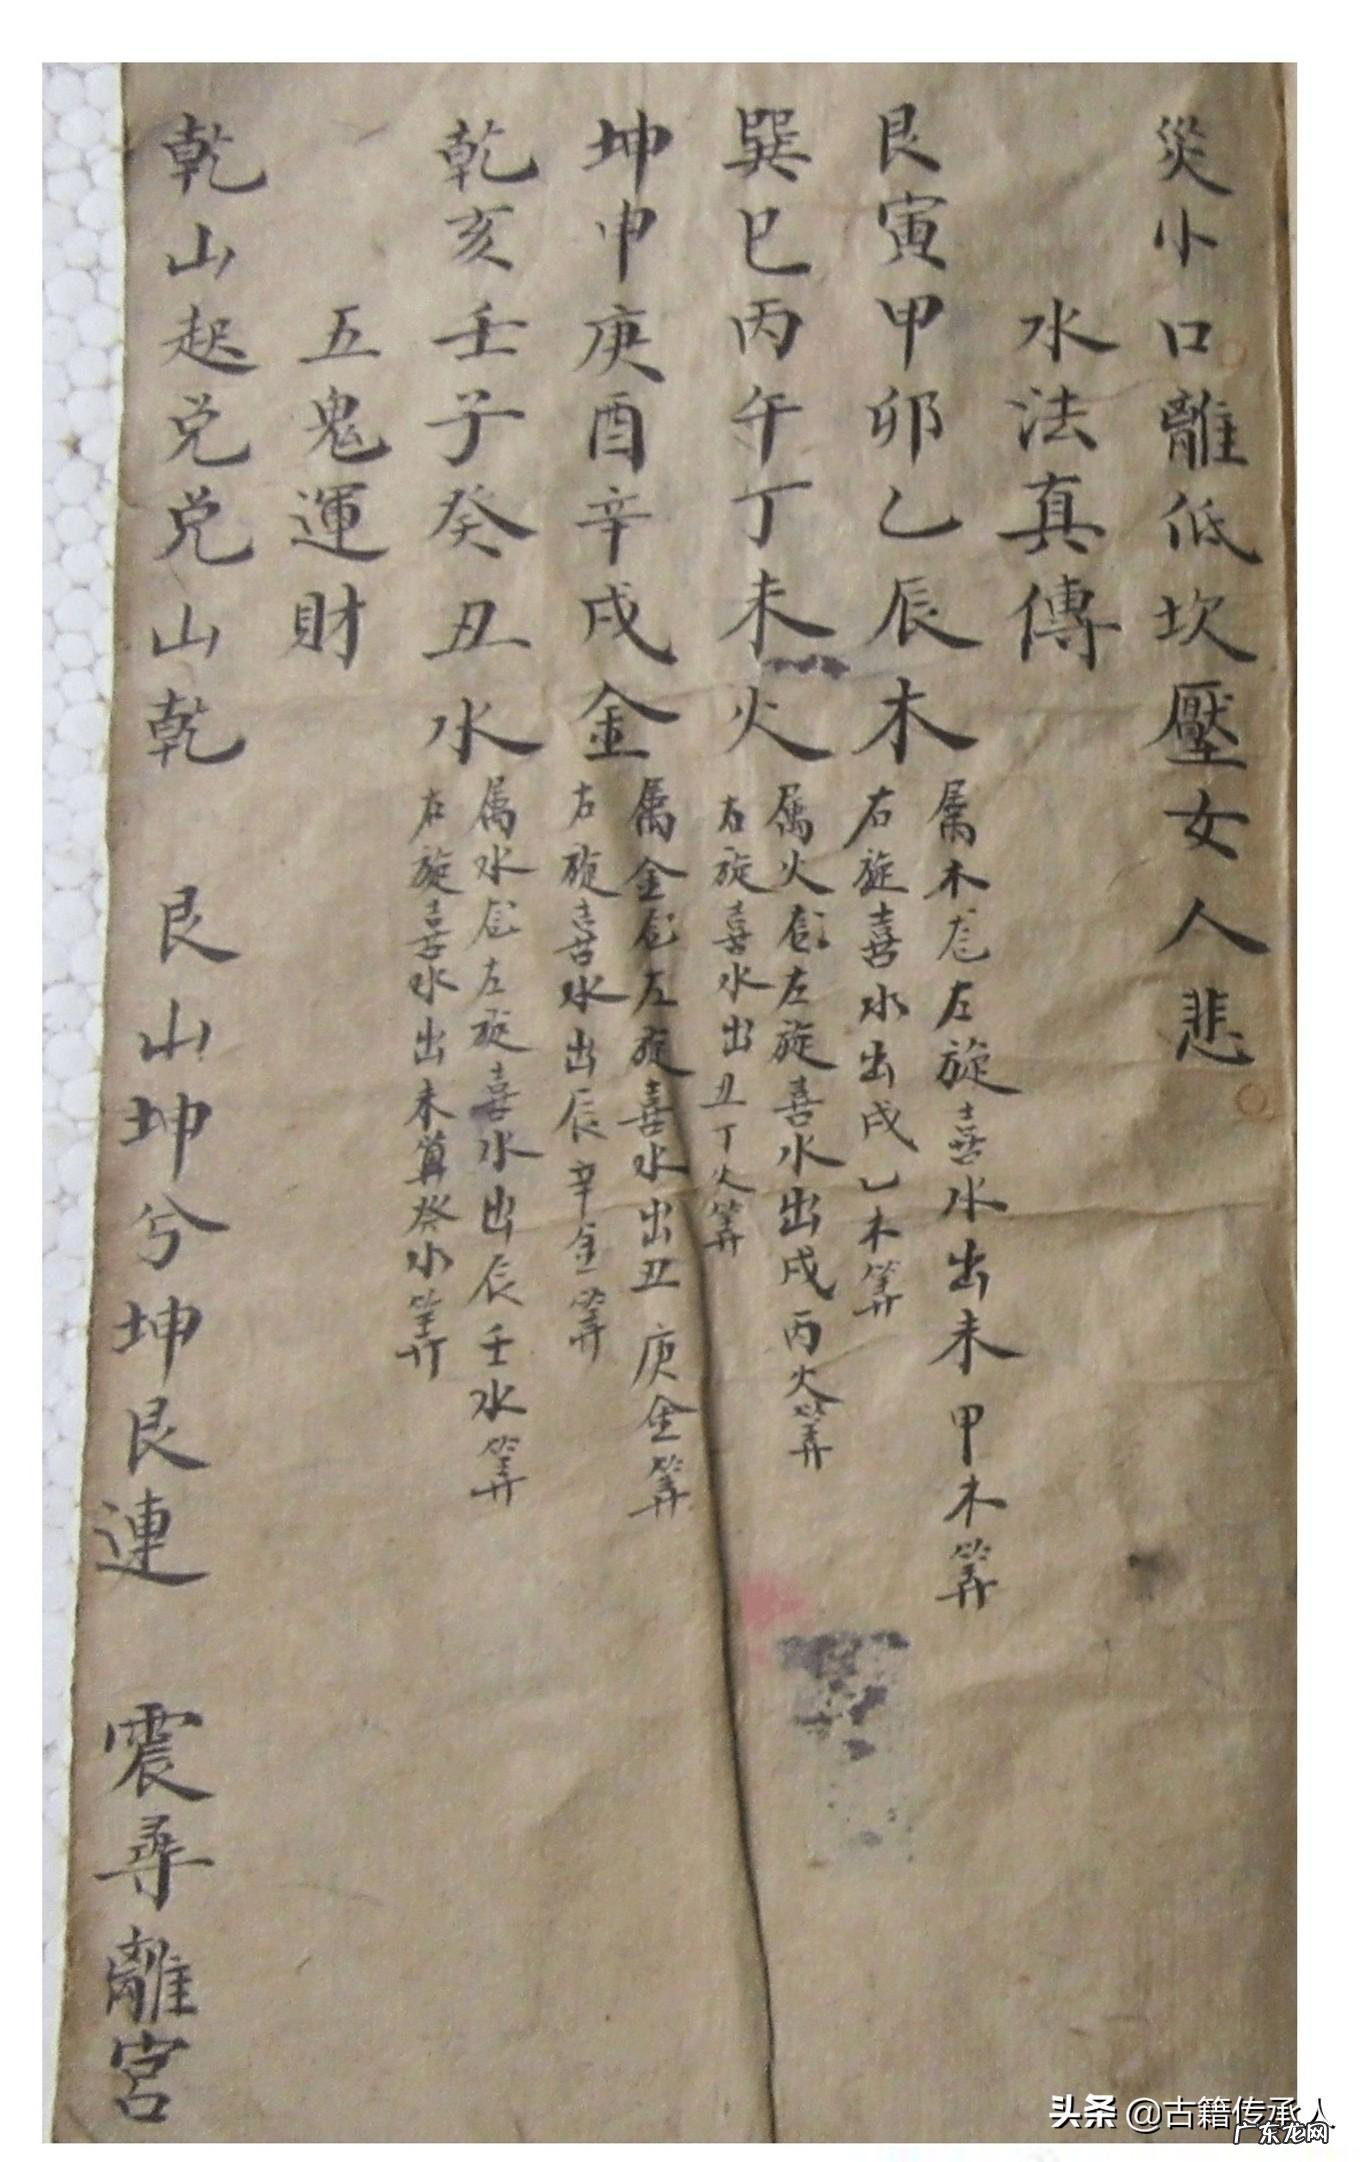 災小口離低坎壓女人悲
水法真傳
艮寅甲卯乙辰木
属木龙左旋喜水出未甲木筭
右旋喜水出戌乙木筭
巽巳丙午丁未火
属火龙左旋喜水出戌丙火筭
右旋喜水出丑丁火筭
坤申庚酉辛戌金
属金龙左旋喜水出丑庚金筭
右旋喜水出辰辛金筭
乾亥壬子癸丑水
属水龙左旋喜水出辰壬水筭
右旋喜水出未算癸水筭
五鬼運財
乾山起兑兑山乾 艮山坤兮坤艮連 震尋離宮
头条 @古籍传承人
广东龙网